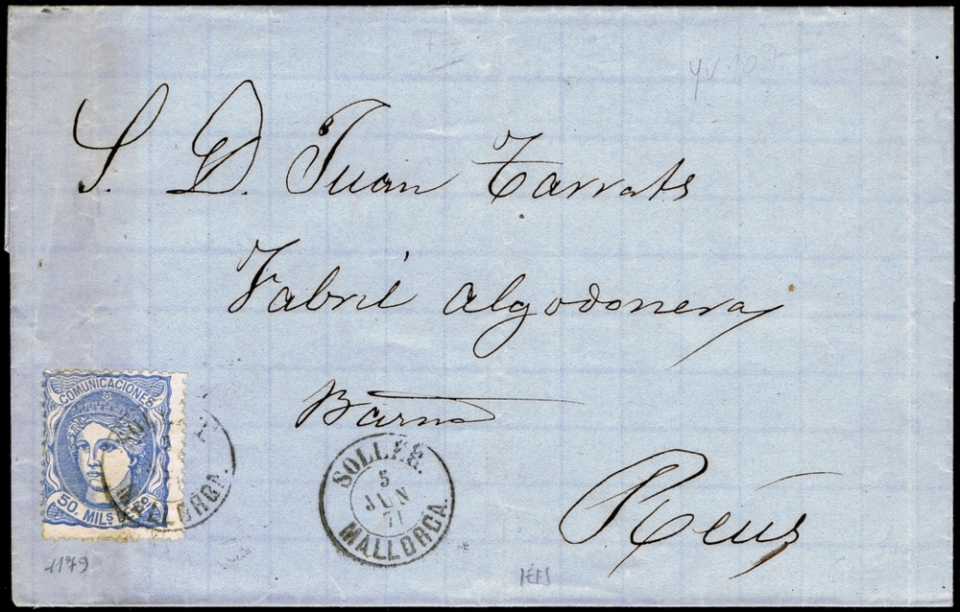 S. D. Juan Tarrats
Fabril algodonera
Barna
Reus
COMUNICACIONES
50. MILS DE E
MALLORCA.
SOLLER.
5
JUN
71
MALLORCA.
1179